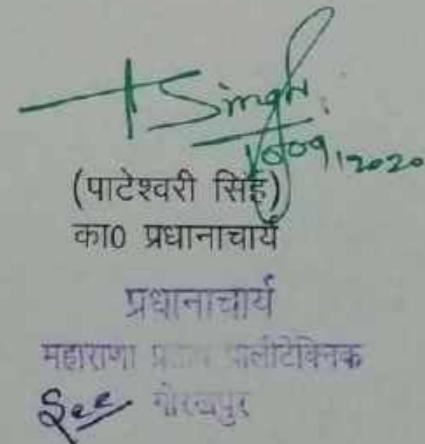 Singh
16/09/2020
(पाटेश्वरी सिंह)
का0 प्रधानाचार्य
प्रधानाचार्य
महाराणा प्रताप पालीटेक्निक
गोरखपुर